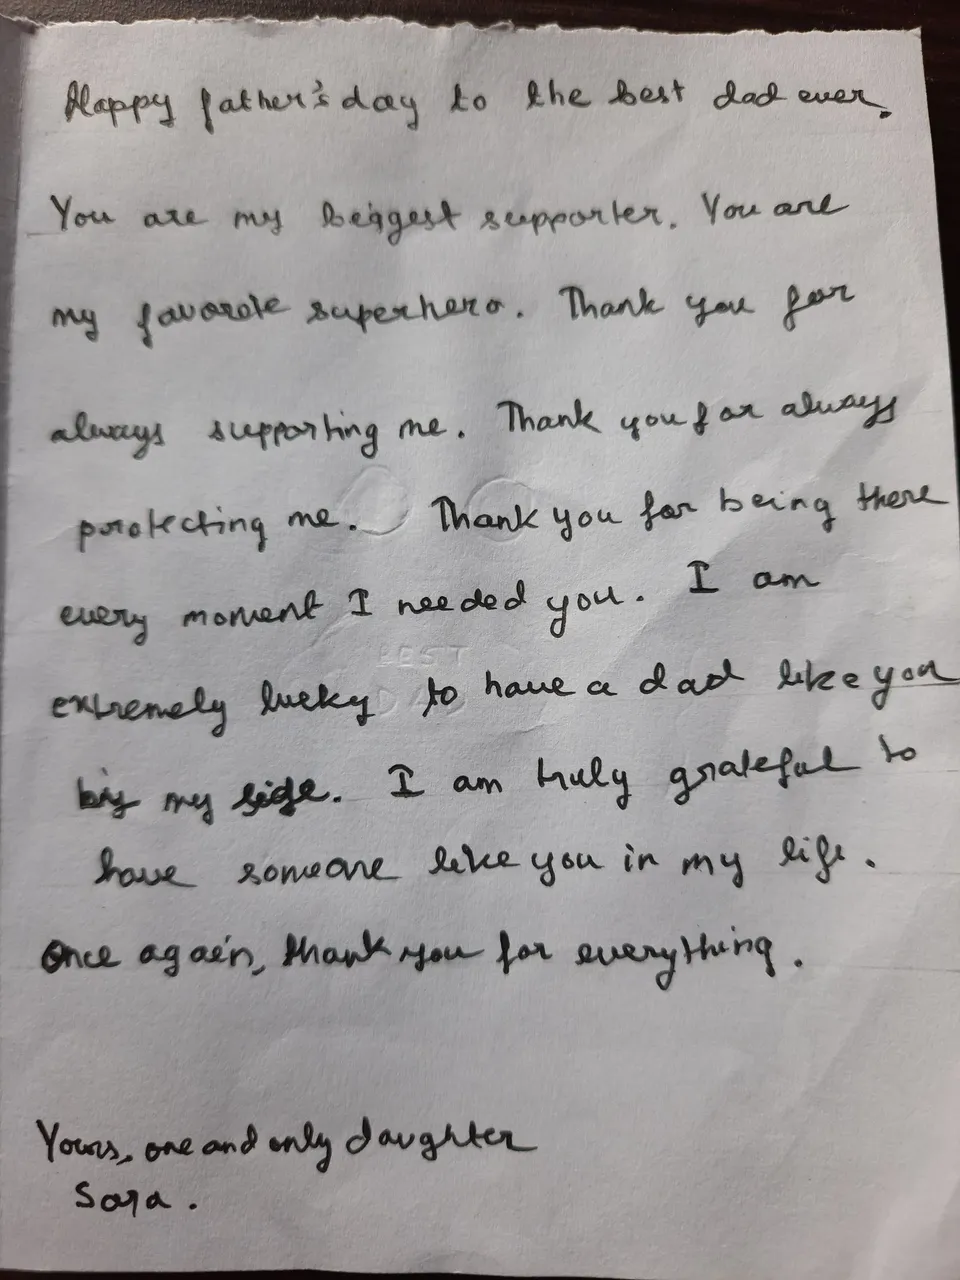 Happy father's day to the best dad ever.
You are my biggest supporter. You are
my favorote superhero. Thank you for
always supporting me. Thank you for always
protecting me. Thank you for being there
every moment I needed you. I am
extremely lucky to have a dad like you
by my side. I am truly grateful to
have someone like you in my life.
Once again, thank you for everything.
Yours, one and only daughter
Sara.
BEST
DAD